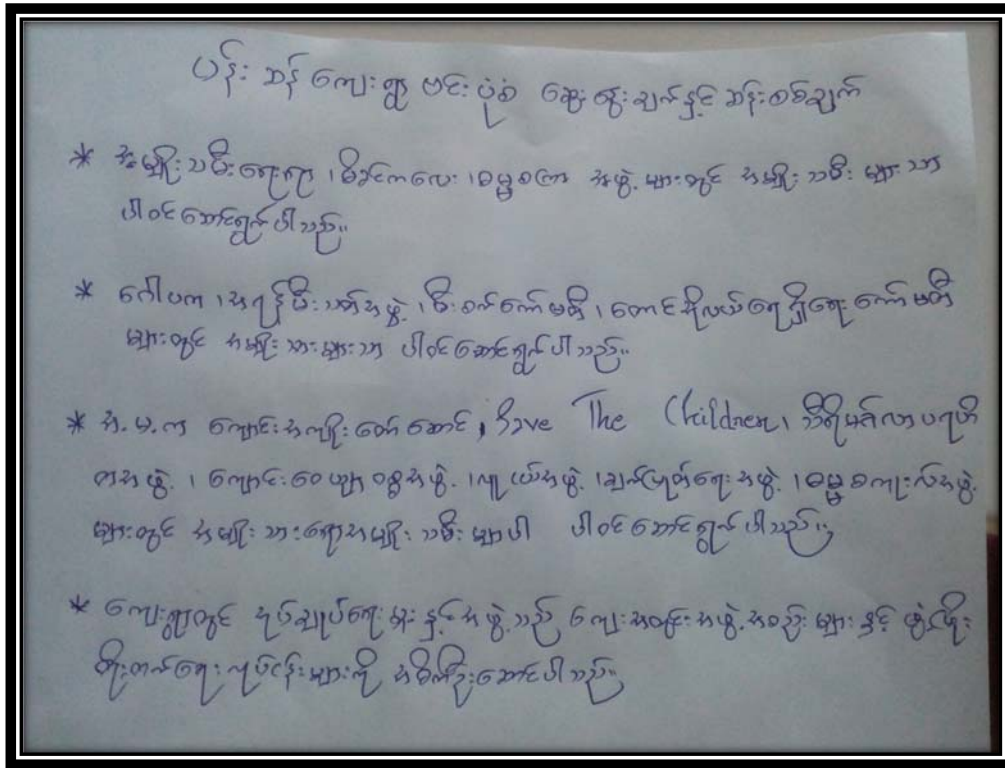 ပန်းဆန် ကျေးရွာ ဗင်းပုံစံ ဆွေးနွေးချက်နှင့် ဆန်းစစ်ချက်
* အမျိုးသမီးရေးရာ ၊ မိခင်ကလေး ၊ ဓမ္မစကြာ အဖွဲ့များတွင် အမျိုးသမီးများသာ
ပါဝင်ဆောင်ရွက်ပါသည်။
* ဂေါပက ၊ အရန်မီးသတ်အဖွဲ့ ၊ မီးစက်ကော်မတီ ၊ တောင်ဆိုလယ်ရေရရှိရေးကော်မတီ
များတွင် အမျိုးသားများသာ ပါဝင်ဆောင်ရွက်ပါသည်။
* အ.မ.က ကျောင်းအကျိုးတော်ဆောင် ၊ Save The Children ၊ သီရိမင်္ဂလာပရဟိ
တအဖွဲ့ ၊ ကျောင်းဝေယျာဝစ္စအဖွဲ့ ၊ လူငယ်အဖွဲ့ ၊ ချက်ပြုတ်ရေးအဖွဲ့ ၊ ဓမ္မစကူးလ်အဖွဲ့
များတွင် အမျိုးသားရောအမျိုးသမီးများပါ ပါဝင်ဆောင်ရွက်ပါသည်။
* ကျေးရွာတွင် အုပ်ချုပ်ရေးမှူးနှင့်အဖွဲ့သည် ကျေးရွာတွင်းအဖွဲ့အစည်းများနှင့် ဖွံ့ဖြိုး
တိုးတက်ရေးလုပ်ငန်းများကို အဓိကဦးဆောင်ပါသည်။